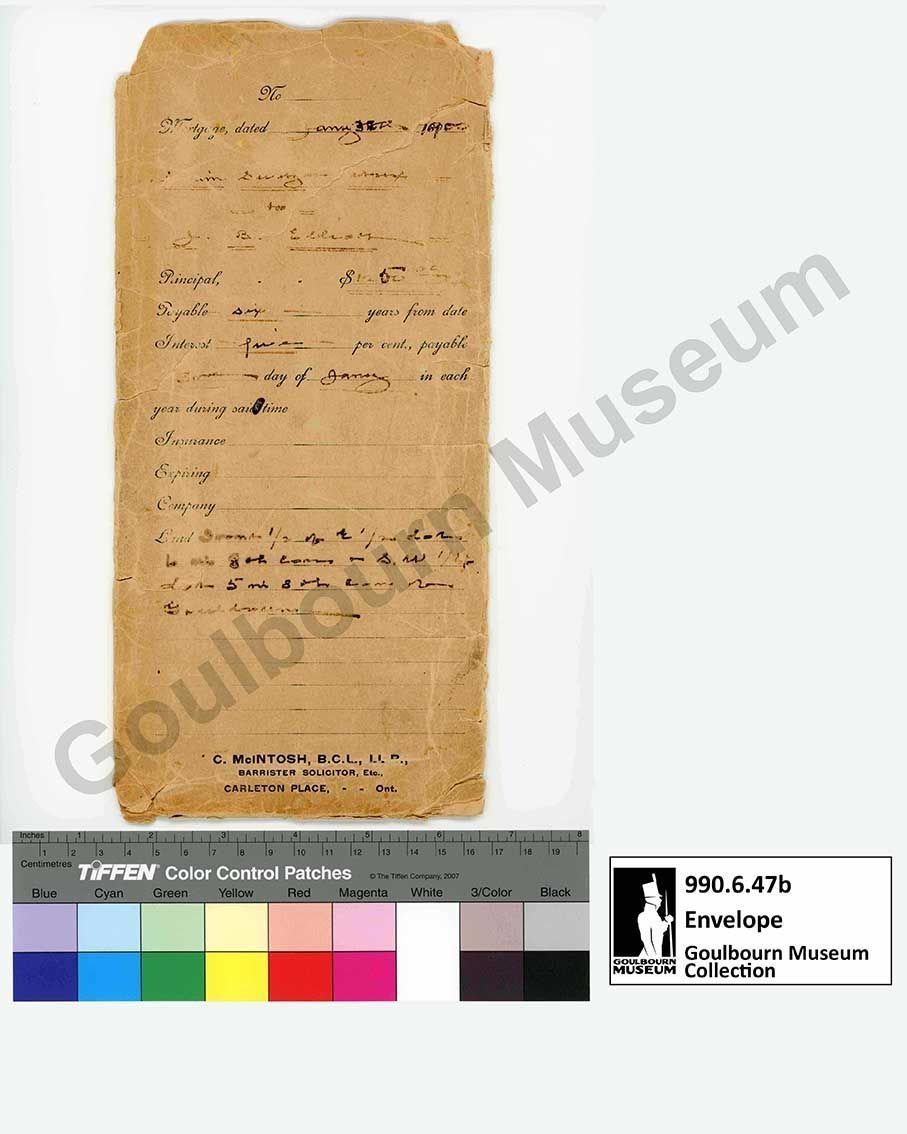 No
Mortgage, dated Jany
to
J. B. Elliott
Principal, - - $
Payable six years from date
Interest five per cent., payable
day of Jany in each
year during said time
Insurance
Expiring
Company
Land 1/2 of E 1/2 Lot
in 8th Conc S.W 1/4
Lot 5 in 8th Conc
Goulbourn
C. McINTOSH, B.C.L., LL.B.,
BARRISTER SOLICITOR, Etc.,
CARLETON PLACE, - - Ont.
Goulbourn Museum
Inches 1 2 3 4 5 6 7 8
Centimetres 1 2 3 4 5 6 7 8 9 10 11 12 13 14 15 16 17 18 19
TIFFEN® Color Control Patches © The Tiffen Company, 2007
Blue Cyan Green Yellow Red Magenta White 3/Color Black
990.6.47b
Envelope
Goulbourn Museum
Collection
GOULBOURN
MUSEUM